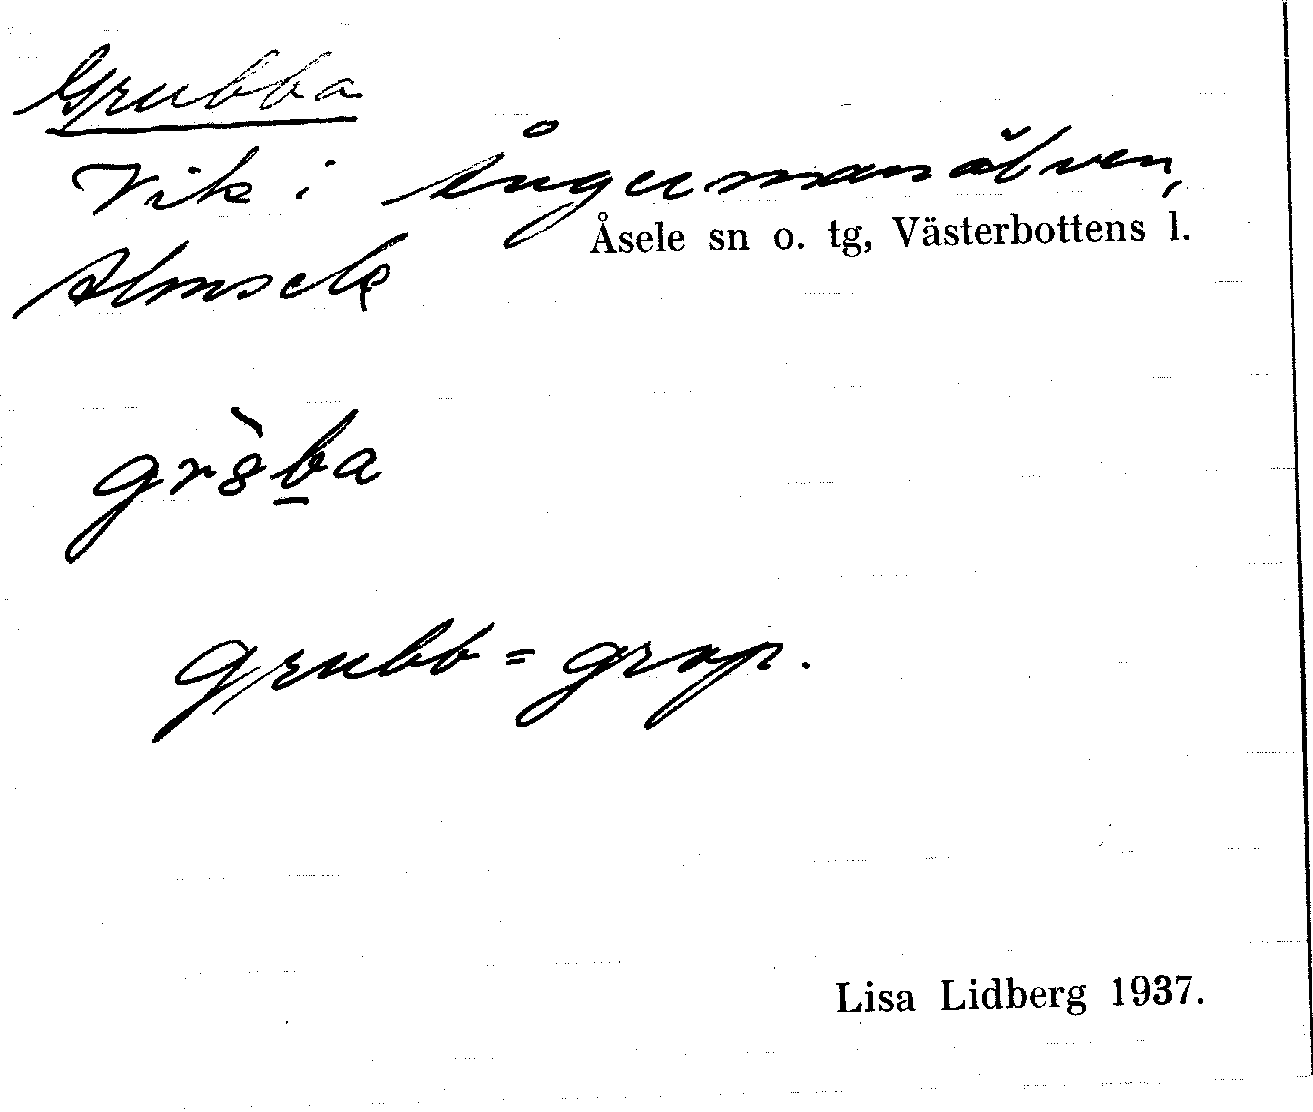 Grubba
Vik i Ångermanälven,
Åsele sn o. tg, Västerbottens l.
Almsele
gr8̀b̲a
grubb = grop.
Lisa Lidberg 1937.